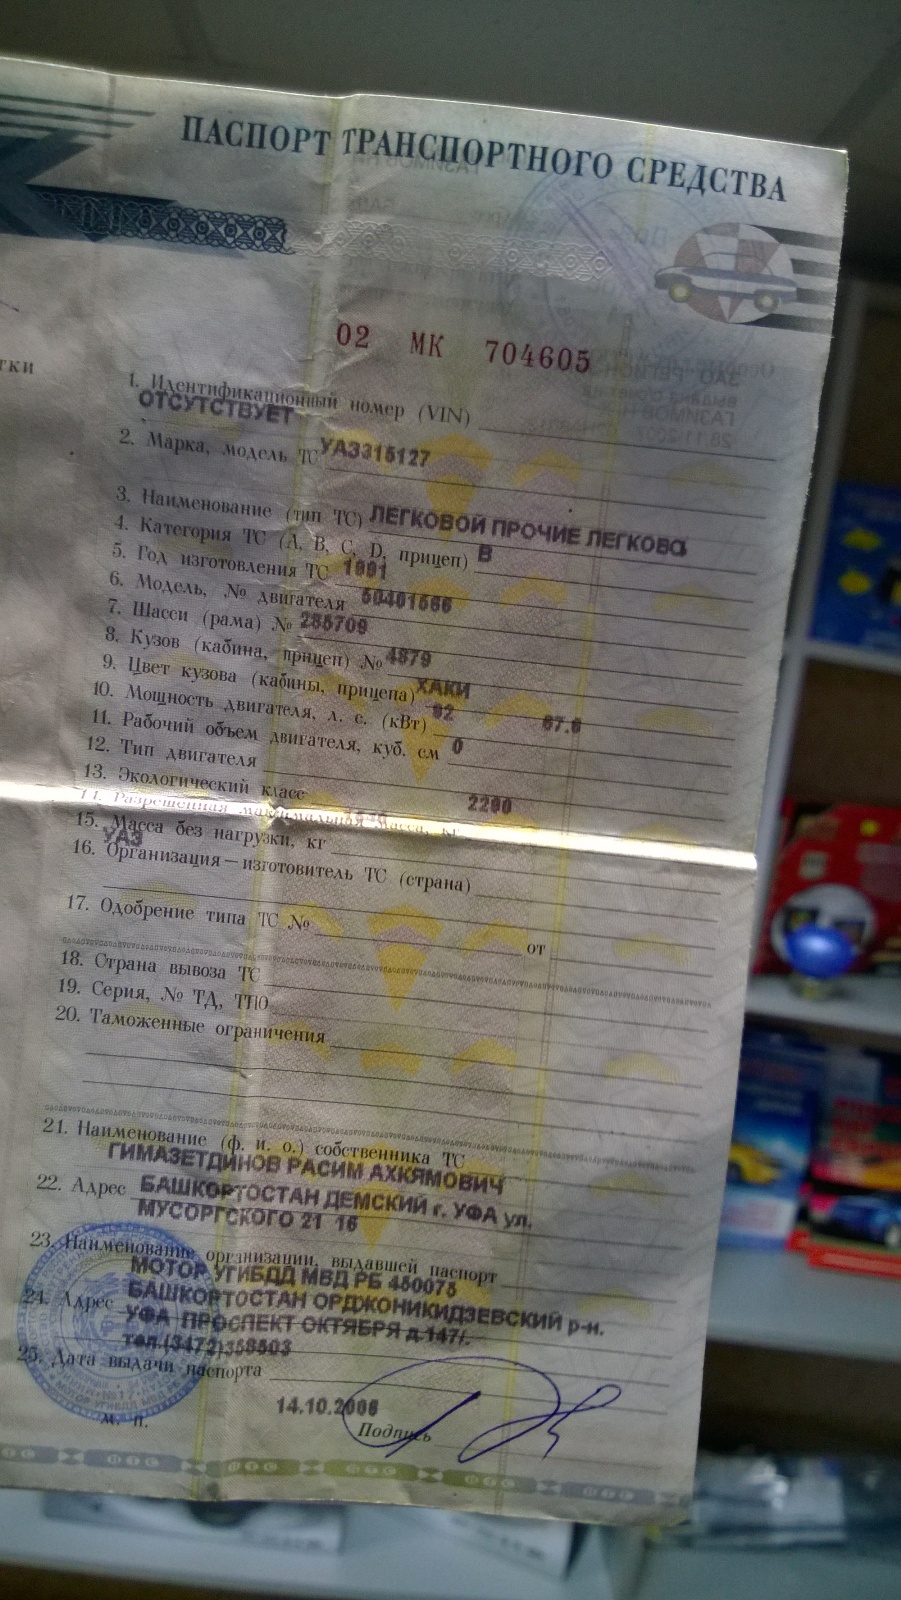 ПАСПОРТ ТРАНСПОРТНОГО СРЕДСТВА
02 МК 704605
тки
1. Идентификационный номер (VIN)
ОТСУТСТВУЕТ
2. Марка, модель ТС УАЗ315127
3. Наименование (тип ТС) ЛЕГКОВОЙ ПРОЧИЕ ЛЕГКОВО
4. Категория ТС (A, B, C, D, прицеп) B
5. Год изготовления ТС 1991
6. Модель, № двигателя 50401566
7. Шасси (рама) № 285709
8. Кузов (кабина, прицеп) № 4879
9. Цвет кузова (кабины, прицепа) ХАКИ
10. Мощность двигателя, л. с. (кВт) 92 67.6
11. Рабочий объем двигателя, куб. см 0
12. Тип двигателя
13. Экологический класс
2290
14. Разрешенная максимальная масса, кг
15. Масса без нагрузки, кг
УАЗ
16. Организация—изготовитель ТС (страна)
17. Одобрение типа ТС № от
18. Страна вывоза ТС
19. Серия, № ТД, ТПО
20. Таможенные ограничения
21. Наименование (ф. и. о.) собственника ТС
ГИМАЗЕТДИНОВ РАСИМ АХКЯМОВИЧ
22. Адрес БАШКОРТОСТАН ДЕМСКИЙ г. УФА ул.
МУСОРГСКОГО 21 16
23. Наименование организации, выдавшей паспорт
МОТОР УГИБДД МВД РБ 450075
24. Адрес БАШКОРТОСТАН ОРДЖОНИКИДЗЕВСКИЙ р-н.
УФА ПРОСПЕКТ ОКТЯБРЯ д 147/.
тел.(3472)358503
25. Дата выдачи паспорта
14.10.2006
М. П. Подпись